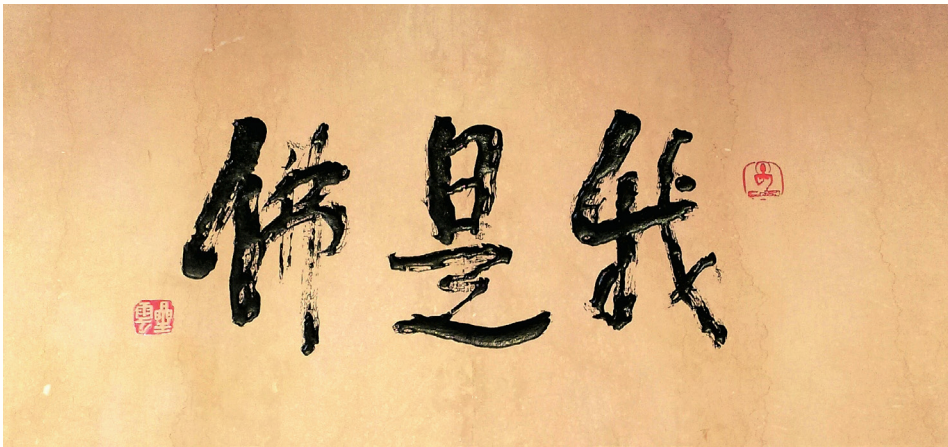 我是佛
星雲